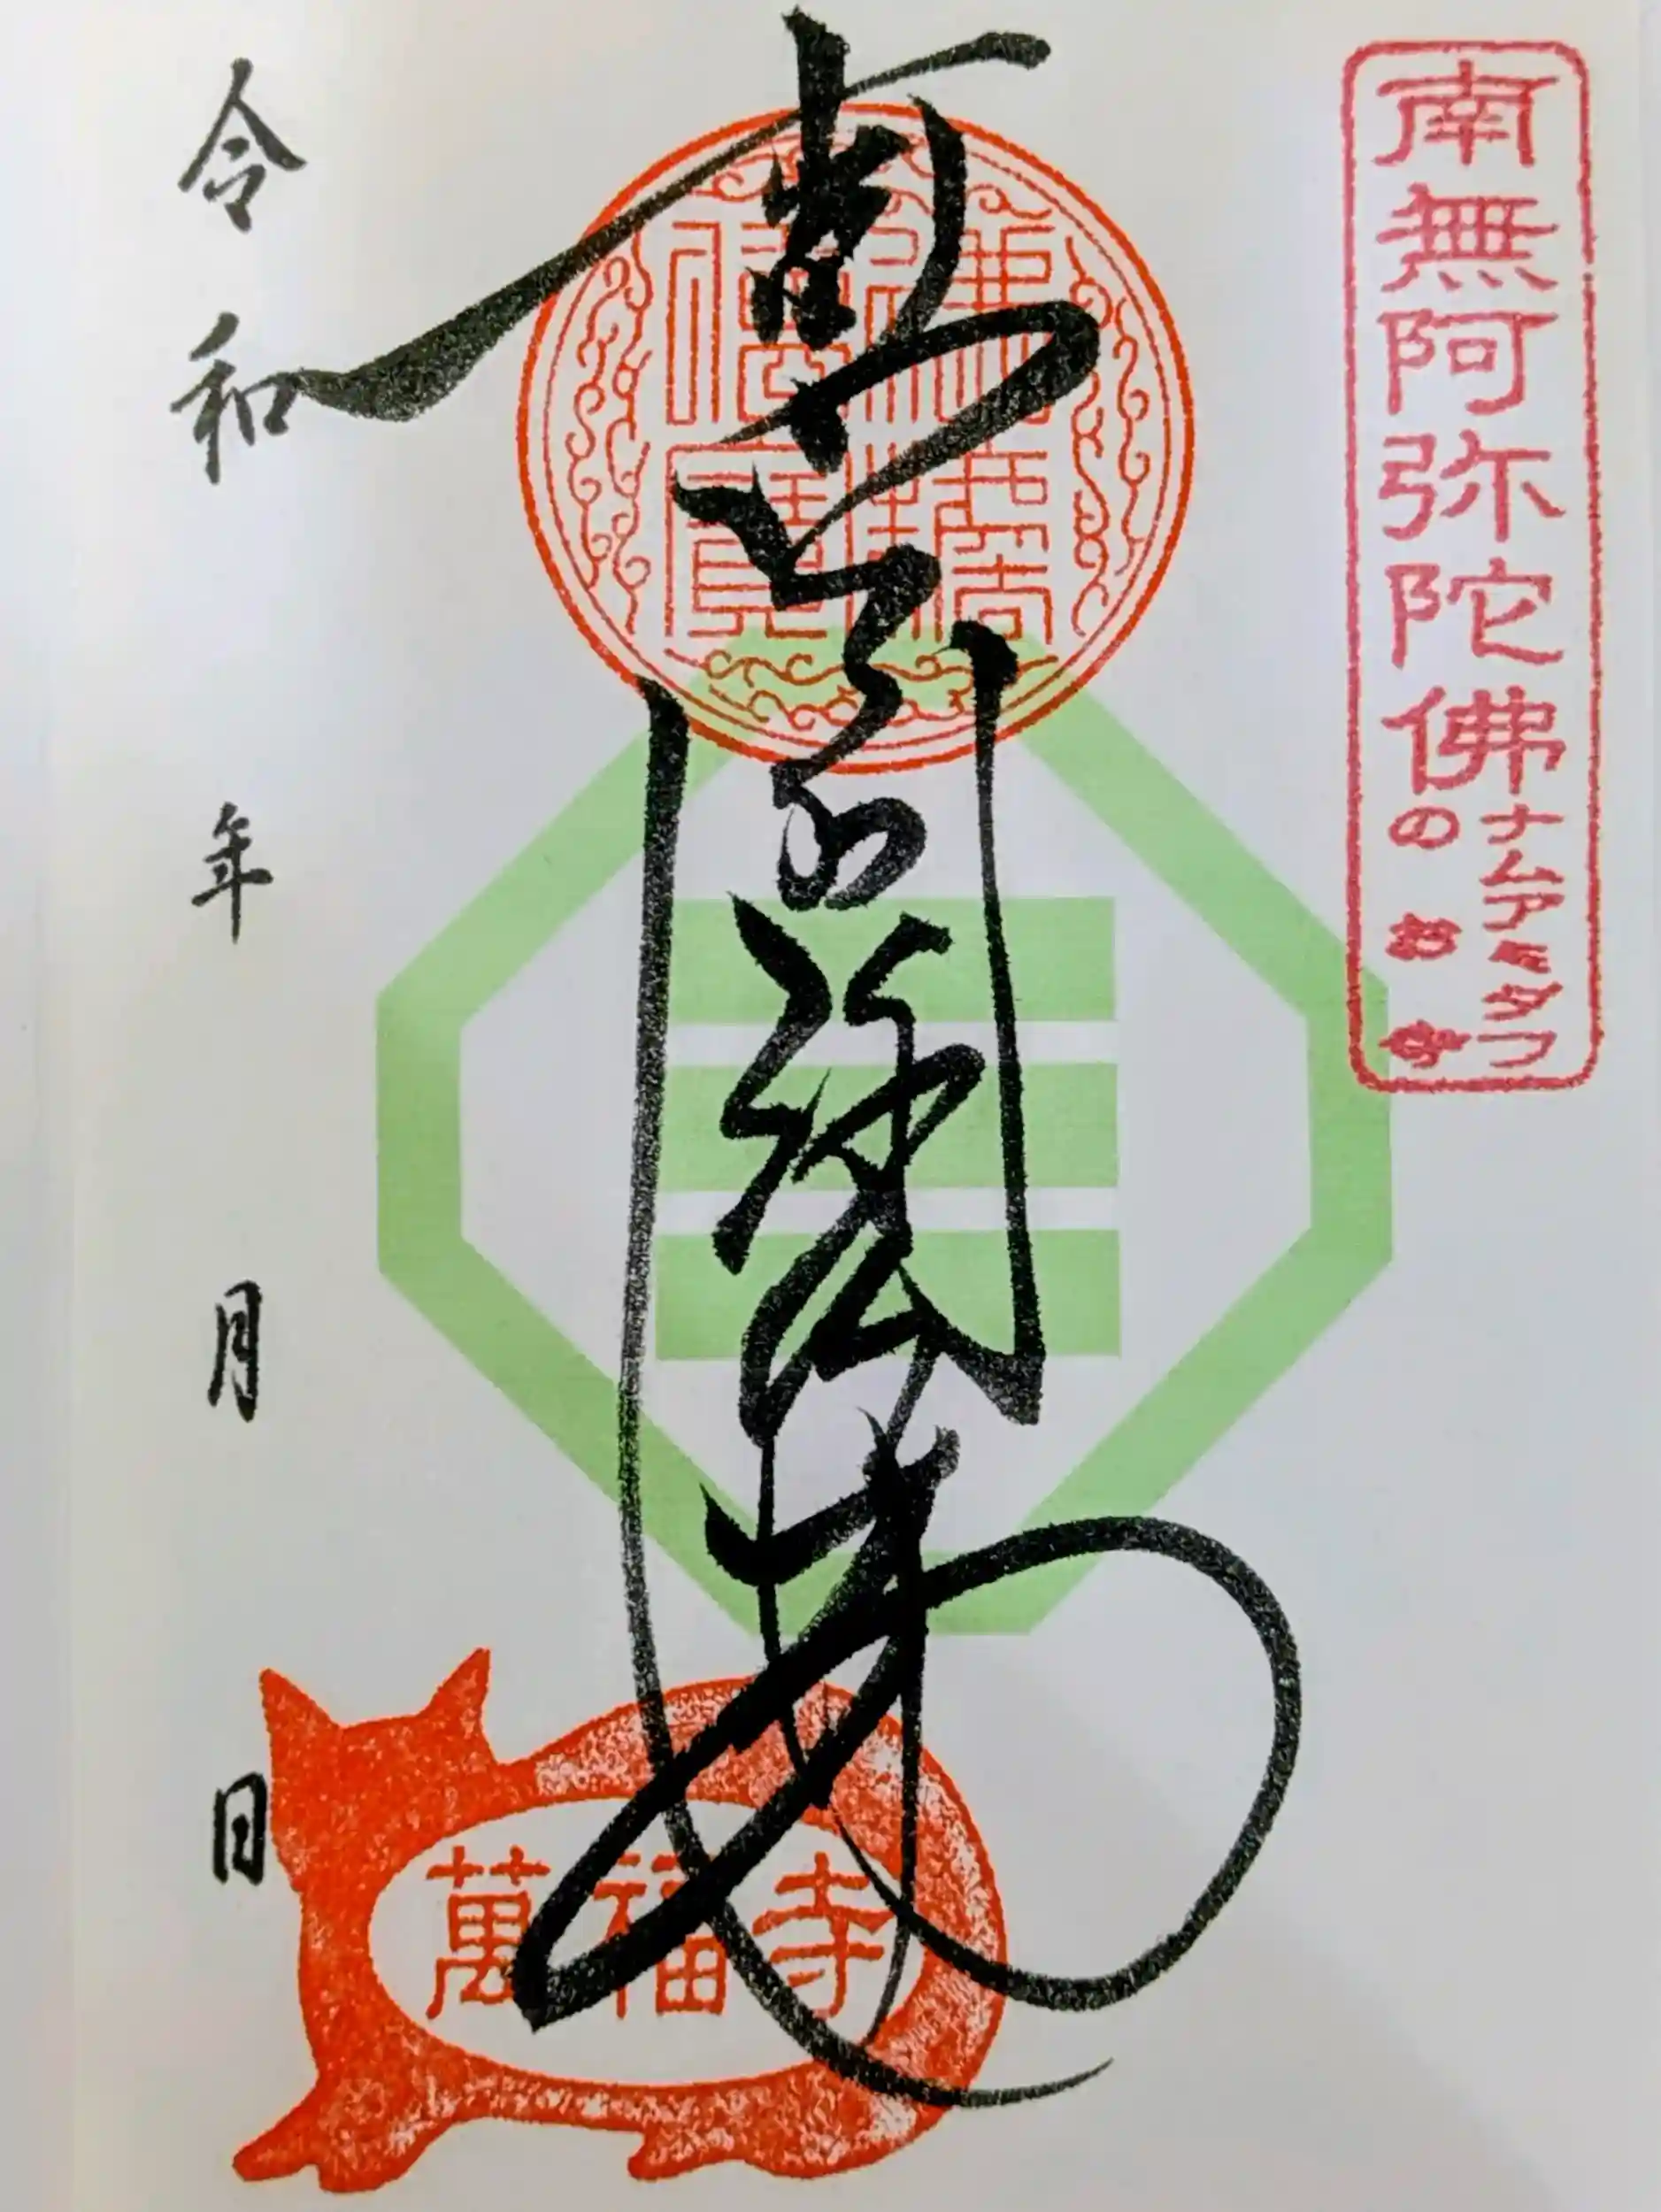 南無阿弥陀佛
ナムアミダフ
のお寺
南無阿弥陀佛
佛法僧寶
萬福寺
令和 年 月 日